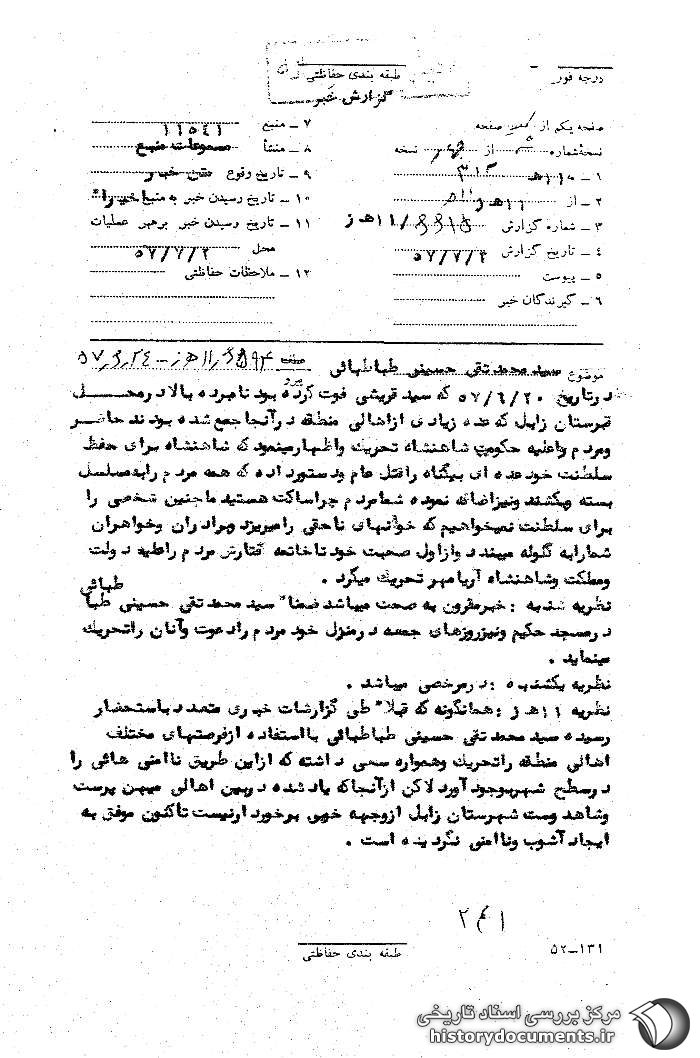 درجه فور
طبقه بندی حفاظتی
گزارش خبر
صفحه یکم از صفحه
نسخه شماره از نسخه
۱ ـ به ۳۱۲
۲ ـ از ۱۱هـ ز
۳ ـ شماره گزارش /۱۱هـ ز
۴ ـ تاریخ گزارش ۵۷/۷/۲
۵ ـ پیوست
۶ ـ گیرندگان خبر
۷ ـ منبع ۱۱۵۴۱
۸ ـ منشأ مسموعات منبع
۹ ـ تاریخ وقوع متن خبر
۱۰ ـ تاریخ رسیدن خبر به منبع اخیراً
۱۱ ـ تاریخ رسیدن خبر برهبر عملیات
محل ۵۷/۷/۲
۱۲ ـ ملاحظات حفاظتی
موضوع سید محمد تقی حسینی طباطبائی
پیرو ۱۱هـ ز ـ ۵۷٫۶٫۲۴
درتاریخ ۵۷/۶/۲۰ که سید قریشی فوت کرده بود نامبرده بالا درمحل
قبرستان زابل که عده زیادی ازاهالی منطقه درآنجا جمع شده بودند حاضر
ومردم راعلیه حکومت شاهنشاه تحریک واظهارمینمود که شاهنشاه برای حفظ
سلطنت خود عده ای بیگناه راقتل عام ودستورداده که همه مردم رابه مسلسل
بسته وبکشند ونیزاضافه نموده شمامردم چراساکت هستید ماچنین شخصی را
برای سلطنت نمیخواهیم که خونهای ناحقی رامیریزد وبرادران وخواهران
شمارابه گلوله میبندد وازاول صحبت خود تاخاتمه گفتارش مردم راعلیه دولت
ومملکت وشاهنشاه آریامهر تحریک میکرد .
نظریه شنبه : خبرمقرون به صحت میباشد ضمناً سید محمد تقی حسینی طباطبائی
درمسجد حکیم ونیزروزهای جمعه درمنزل خود مردم رادعوت وآنان راتحریک
مینماید .
نظریه یکشنبه : درمرخصی میباشد .
نظریه ۱۱هـ ز : همانگونه که قبلاً طی گزارشات خبری متعدد باستحضار
رسیده سید محمد تقی حسینی طباطبائی بااستفاده ازفرصتهای مختلف
اهالی منطقه راتحریک وهمواره سعی داشته که ازاین طریق ناامنی هائی را
درسطح شهربوجود آورد لاکن ازآنجاکه یادشده دربین اهالی میهن پرست
وشاهدوست شهرستان زابل ازوجهه خوبی برخوردارنیست تاکنون موفق به
ایجاد آشوب وناامنی نگردیده است .
طبقه بندی حفاظتی
۵۲ـ۱۳۱
مرکز بررسی اسناد تاریخی
historydocuments.ir